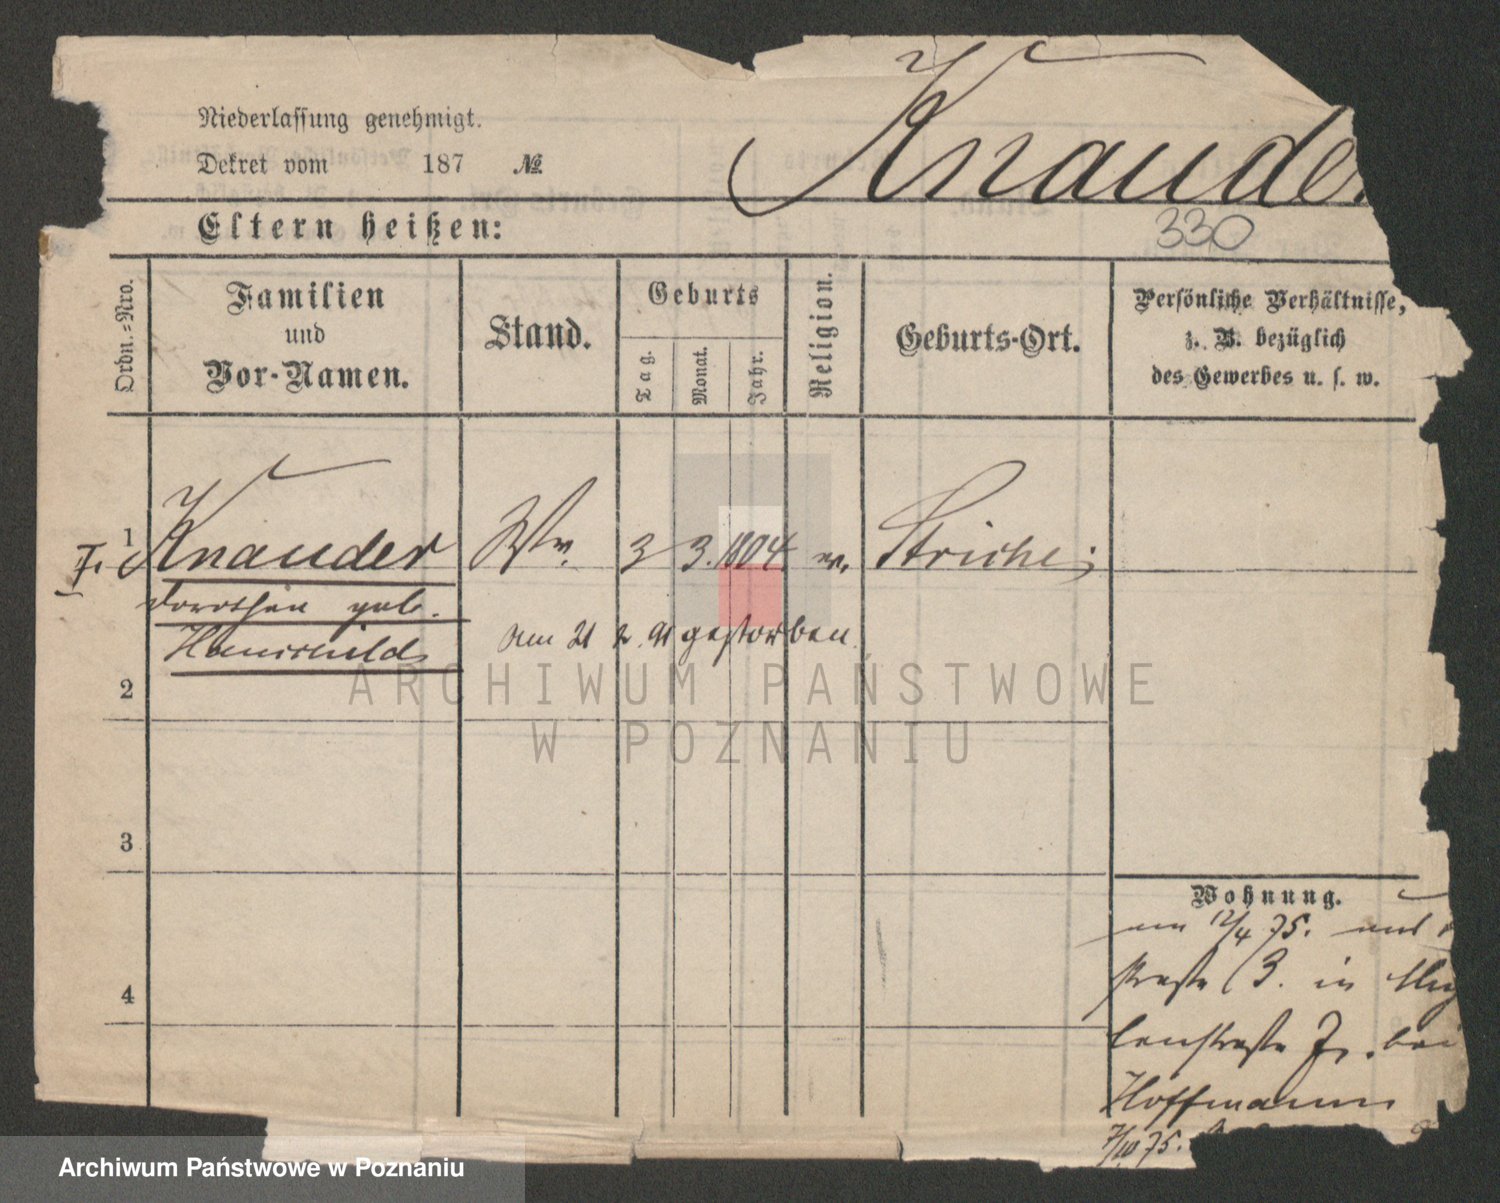 Niederlassung genehmigt.
Dekret vom 187 №
Knauder
330
Eltern heißen:
Ordn.=Nro.
Familien
und
Vor-Namen.
Stand.
Geburts
Tag.
Monat.
Jahr.
Religion.
Geburts-Ort.
Persönliche Verhältnisse,
z. B. bezüglich
des Gewerbes u. s. w.
1
Knauder Ww. 3 3. 1804 ev. Striche
Dorothea geb.
Hauschild
am 21 2. 91 gestorben.
2
3
4
Wohnung.
am 12/4 75. aus
straße 13. in
lenstraße 7. bei
Hoffmann
75.
ARCHIWUM PAŃSTWOWE
W POZNANIU
Archiwum Państwowe w Poznaniu